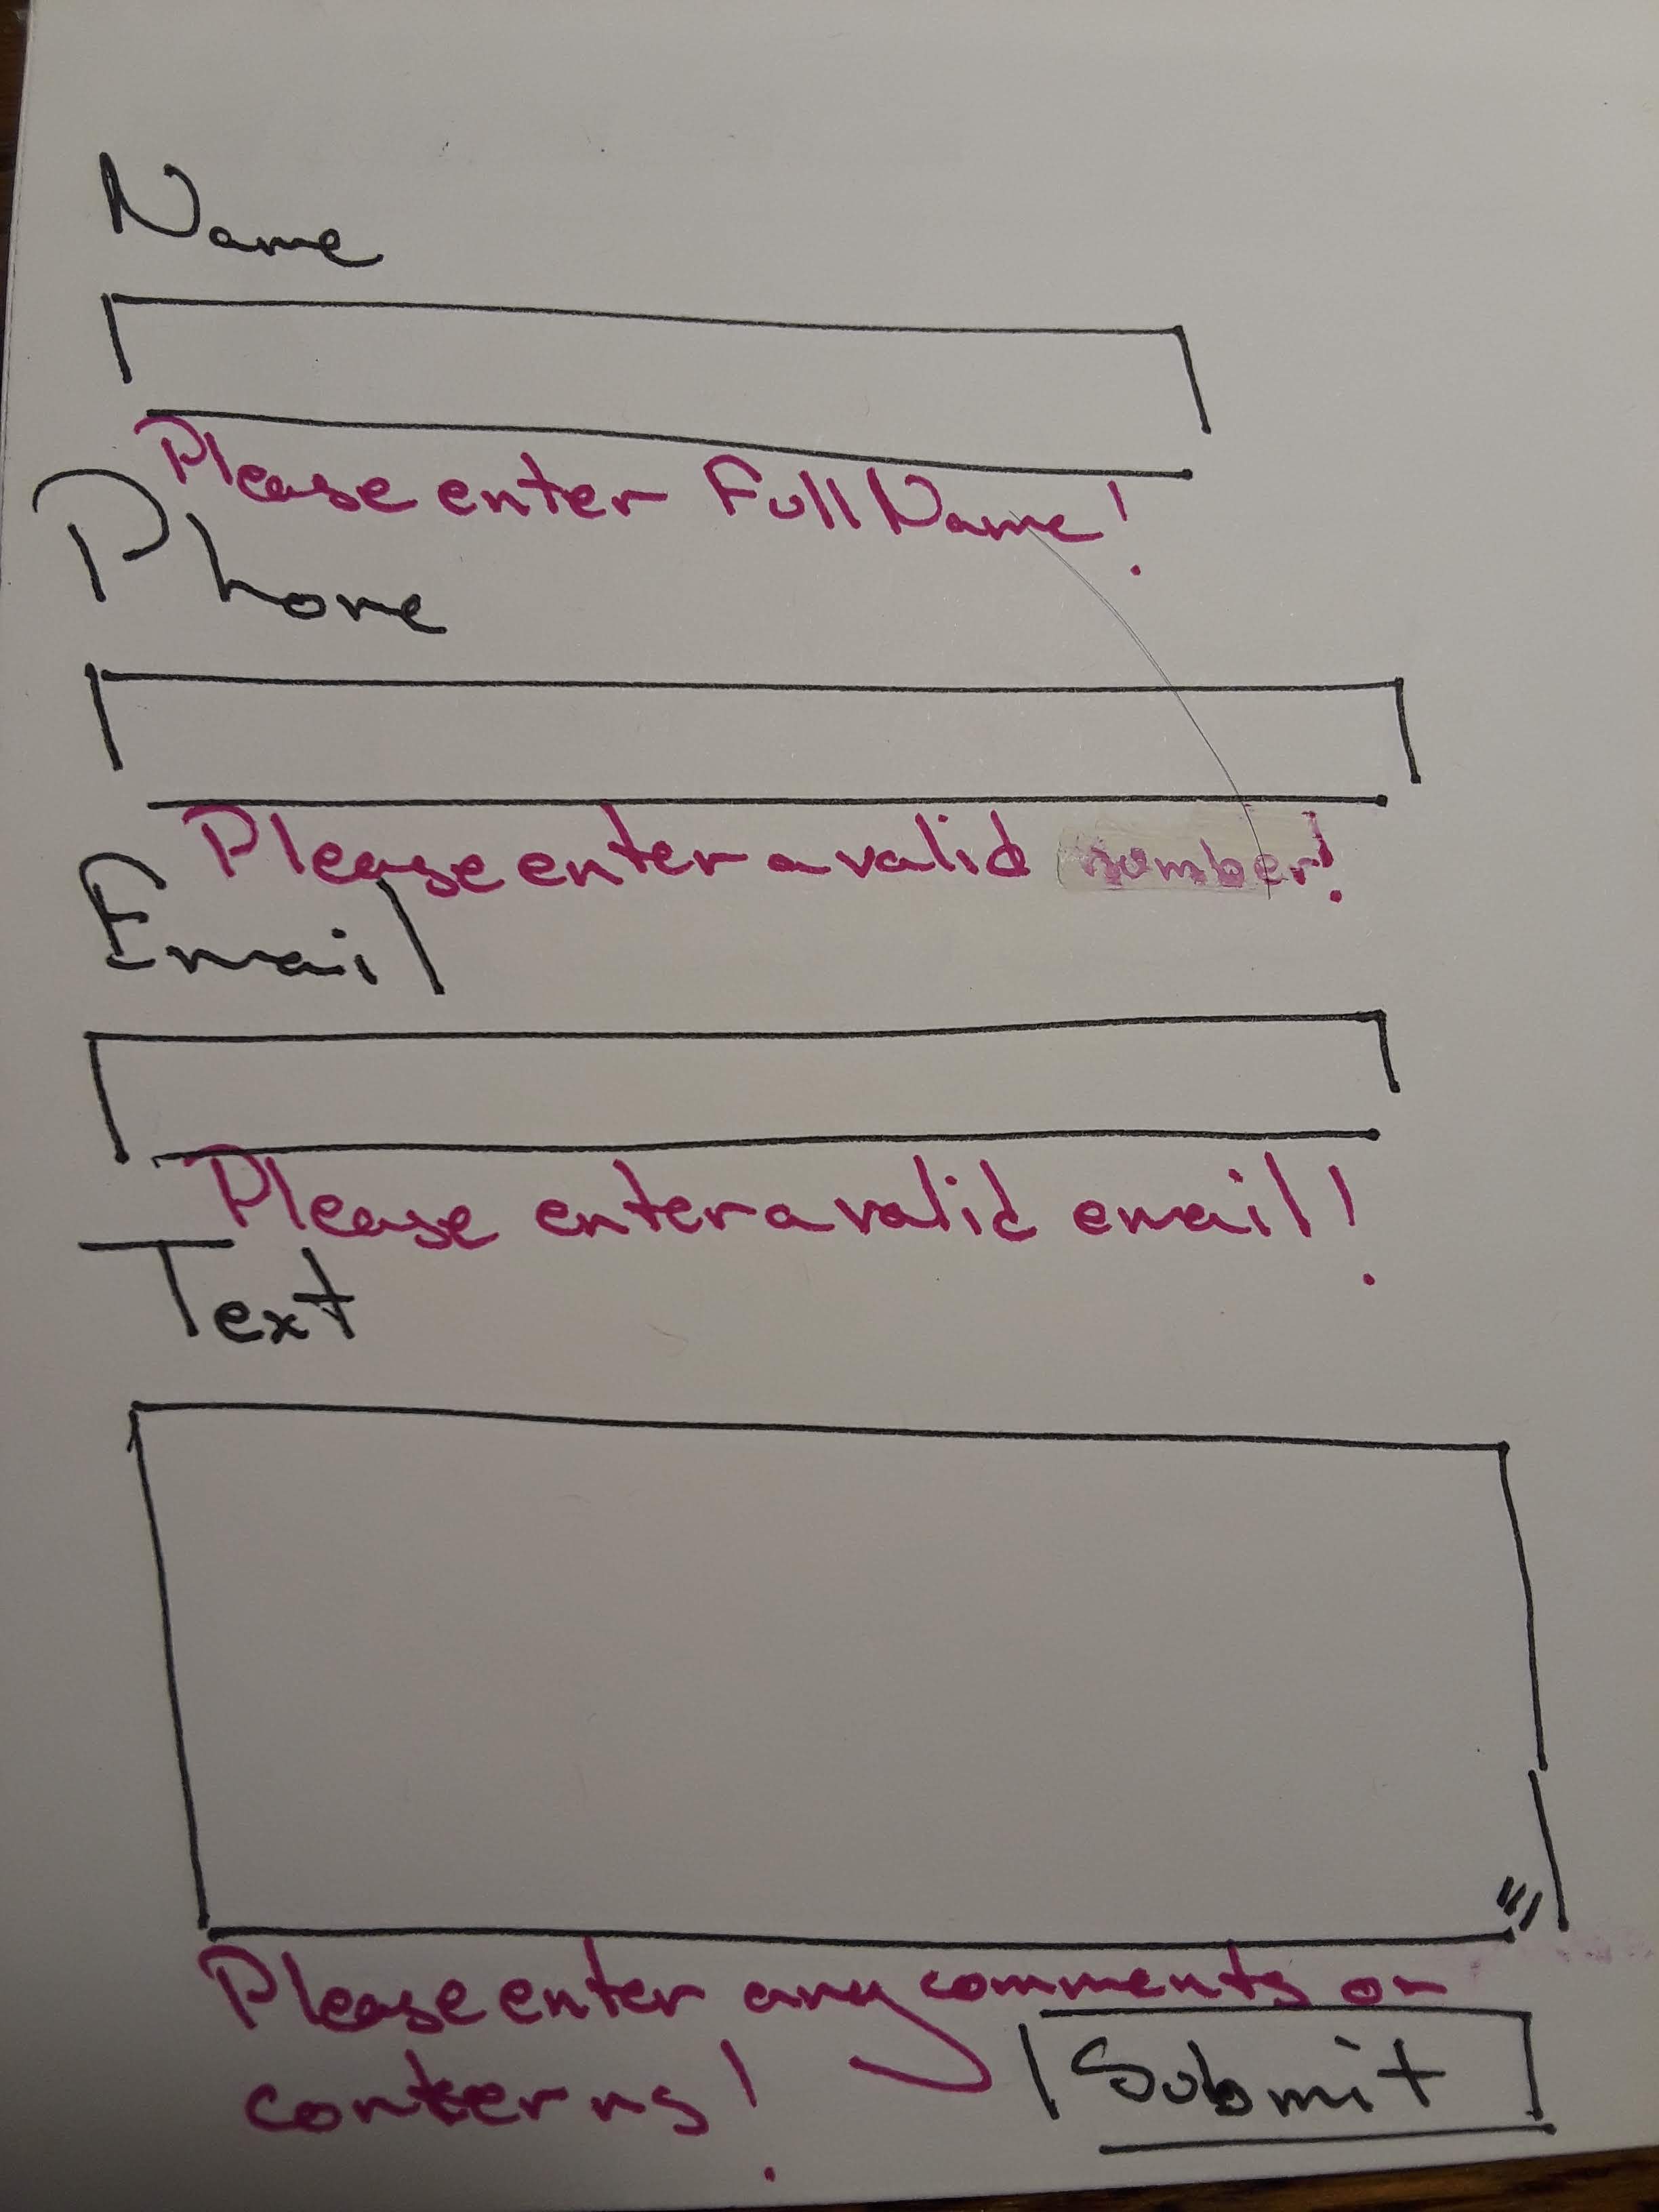 Name
Please enter Full Name!
Phone
Please enter a valid number!
Email
Please enter a valid email!
Text
Please enter any comments or
concerns!
Submit